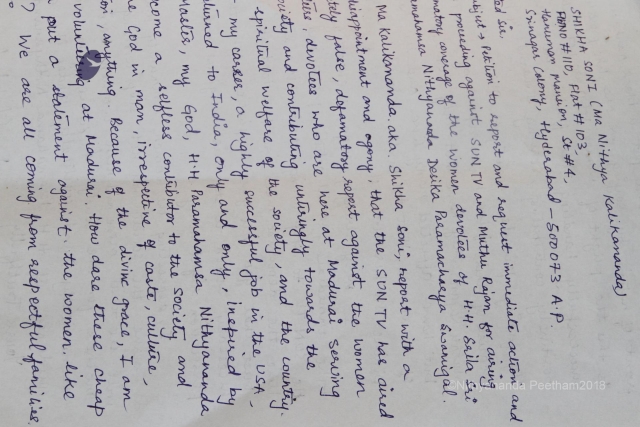 SHIKHA SONI (Ma Nithya Kalikananda)
#110, Flat #103,
Hanuman mansion, St #4,
Srinagar Colony, Hyderabad - 500073 A.P.
ted sir,
bject → Petition to report and request immediate action and
proceeding against SUN TV and Muthu Rajan for airing
matory coverage of the women devotees of H.H. Srila Sri
amahamsa Nithyananda Desika Paramacharya Swamigal.
Ma Kalikananda. aka. Shikha Soni, report with a
disappointment and agony, that the SUN TV has aired
tely false, defamatory report against the women
tees, devotees who are here at Madurai serving
ciety and contributing untiringly towards the
spiritual welfare of the society, and the country.
my career, a highly successful job in the USA,
turned to India, only and only, inspired by
Master, my God, H.H Paramahamsa Nithyananda
come a selfless contributor to the society and
e God in man, irrespective of caste, culture,
ion, anything. Because of the divine grace, I am
volunteering at Madurai. How dare these cheap
put a statement against the women. like
? We are all coming from respectful families.
Nithyananda Peetham2018